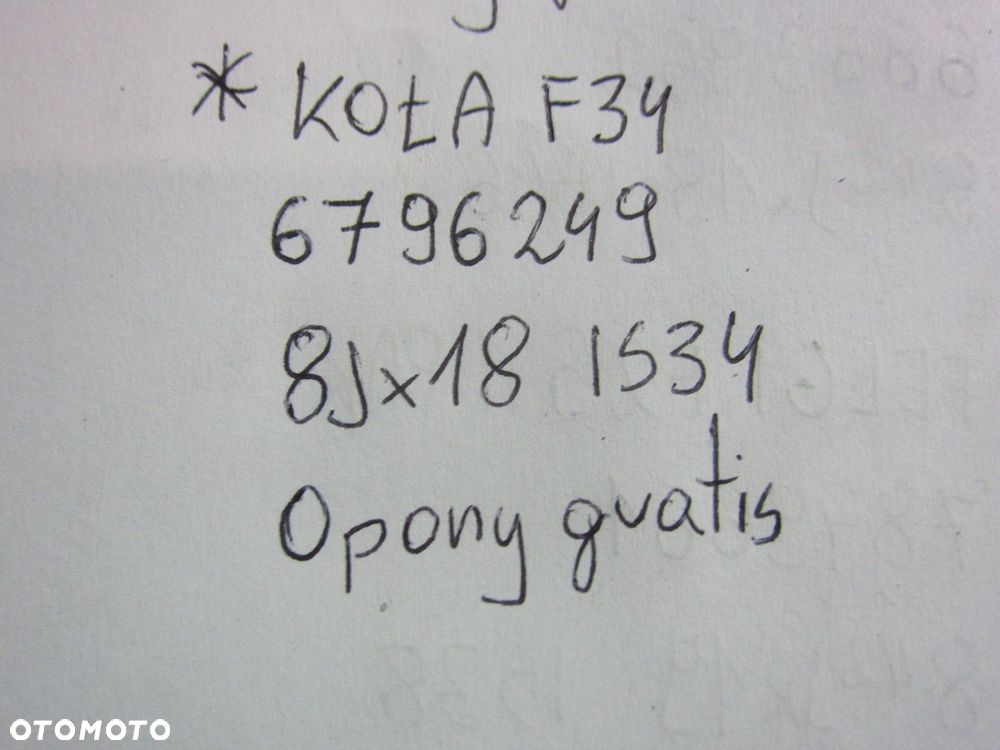 * KOŁA F34
6796249
8Jx18 IS34
Opony gratis
OTOMOTO